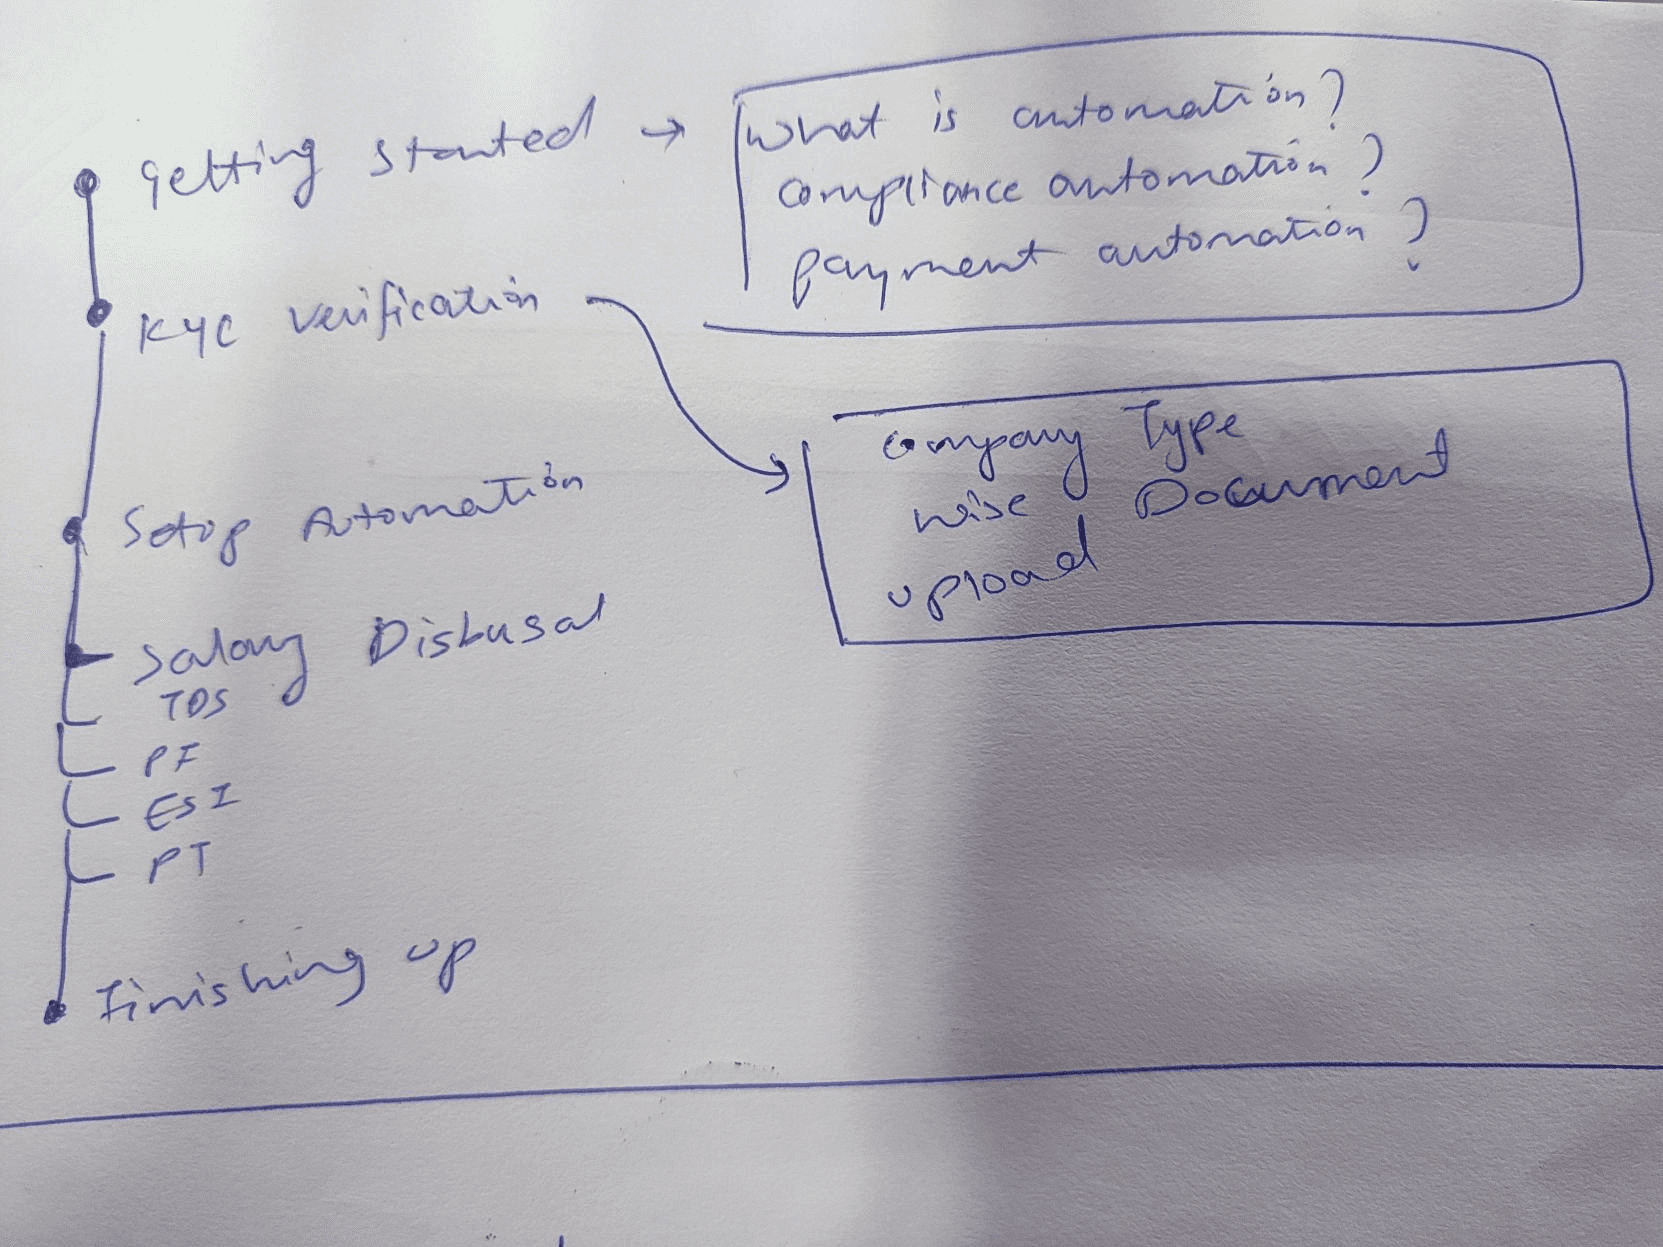 Getting Started → What is automation?
compliance automation?
payment automation?
KYC Verification
Company Type
wise Document
upload
Setup Automation
Salary Disbusal
TDS
PF
ESI
PT
Finishing up